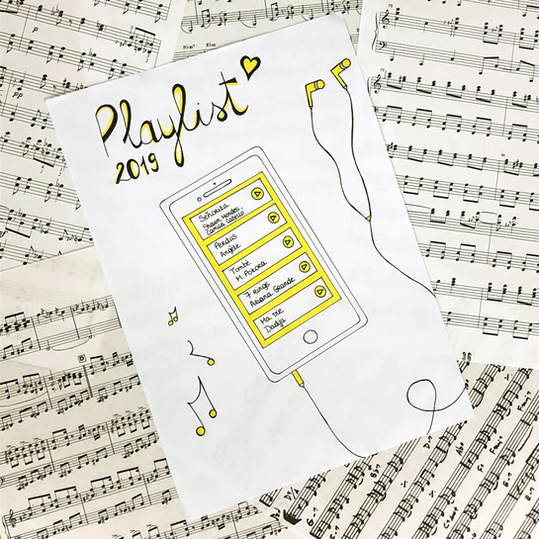 Playlist
2019
Señorita
Shawn Mendes,
Camila Cabello
Perdus
Angèle
Tombé
M. Pokora
7 rings
Ariana Grande
Ma vie
Dadju
36